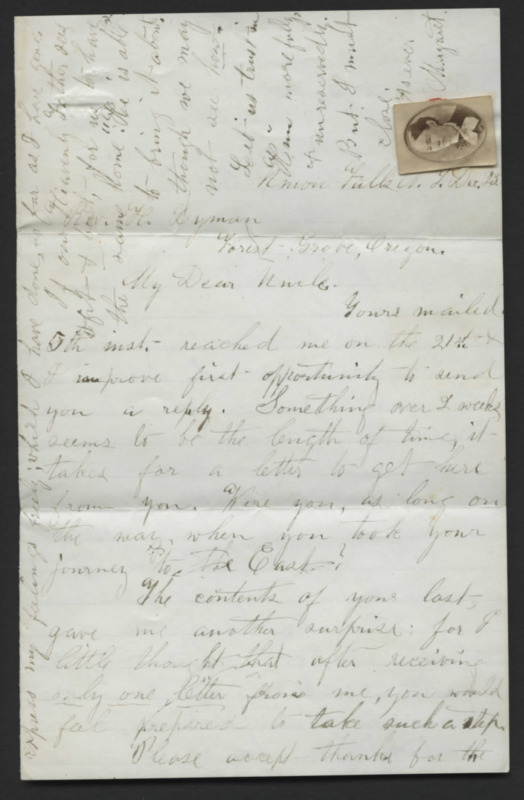 Union Falls N. Y. Dec.
Rev. H. Lyman
Forest Grove, Oregon.
My Dear Uncle.
Yours mailed
5th inst. reached me on the 21st &
I improve first opportunity to send
you a reply. Something over 2 weeks
seems to be the length of time, it
takes for a letter to get here
from you. Were you, as long on
the way, when you took your
journey to the East?
The contents of your last,
gave me another surprise: for I
little thought that after receiving
only one letter from me, you would
feel prepared to take such a step.
Please accept thanks for the
express my feelings fully, which I have done, as far as I have gone.
If our Heavenly Father sees
best for us to have
the same home: He is able
to bring it about
though we may
not see how.
Let us trust in
Him more fully
& unreservedly.
But I must
close.
As ever
Margaret.